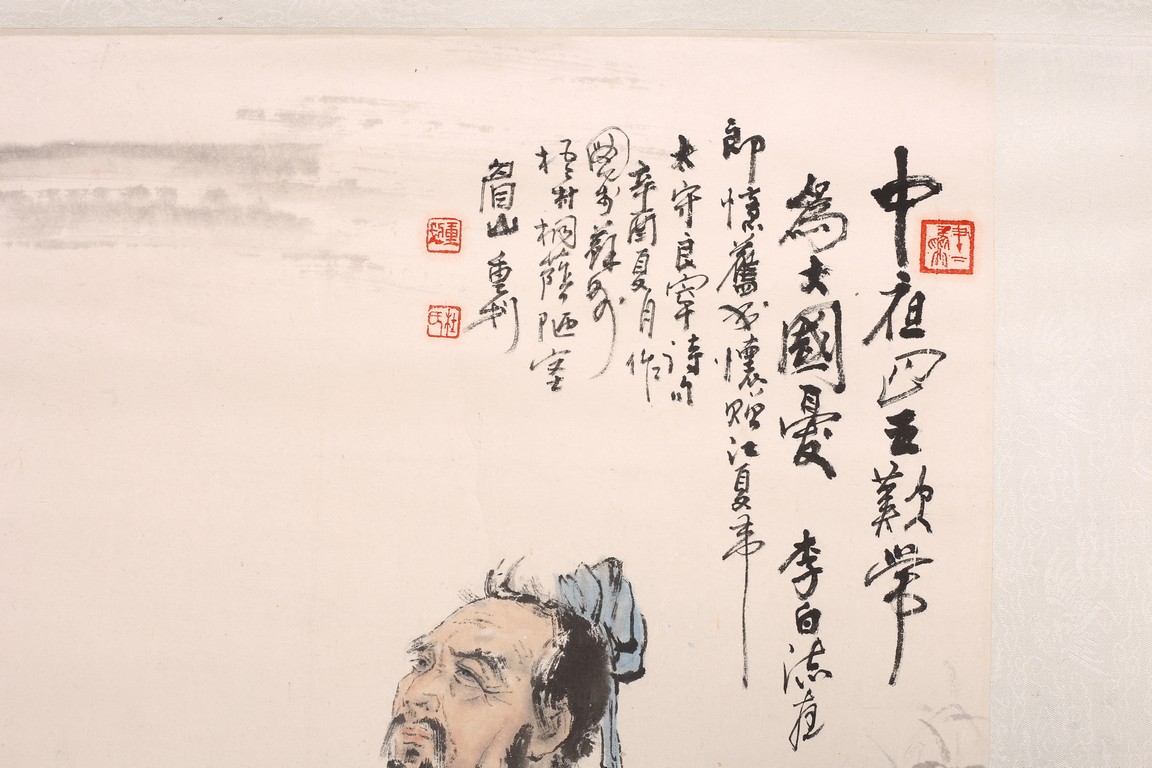 中夜四五歎常
為大國憂 李白流夜
郎憶舊書懷贈江夏韋
太守良宰詩句
辛酉夏月作
圖於蘇州
梧村桐蔭陋室
眉山 重划
重划
杜氏